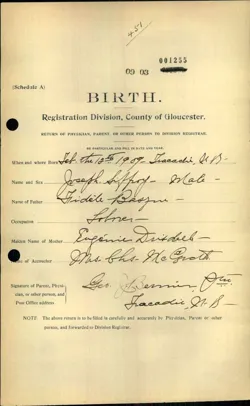 451
001255
09 03
(Schedule A)
BIRTH.
Registration Division, County of Gloucester.
RETURN OF PHYSICIAN, PARENT, OR OTHER PERSON TO DIVISION REGISTRAR.
BE PARTICULAR AND FILL IN DATE AND TIME
When and where Born Feb. the 12th 1909 Tracadie, N.B.
Name and Sex Joseph Male
Name of Father Fidele
Occupation Laborer
Maiden Name of Mother Eugénie
Name of Accoucher Mrs Chs. McGrath
Signature of Parent, Physician, or other person, and Post Office address
Geo.
Tracadie, N.B.
NOTE. The above return is to be filled in carefully and accurately by Physician, Parent or other person, and forwarded to Division Registrar.